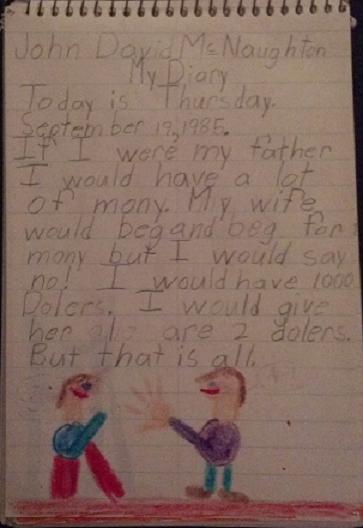 John David McNaughton
My Diary
Today is Thursday.
September 19, 1985.
If I were my father
I would have a lot
of mony. My wife
would beg and beg for
mony but I would say
no! I would have 1000
Dolers. I would give
her are 2 dolers.
But that is all.